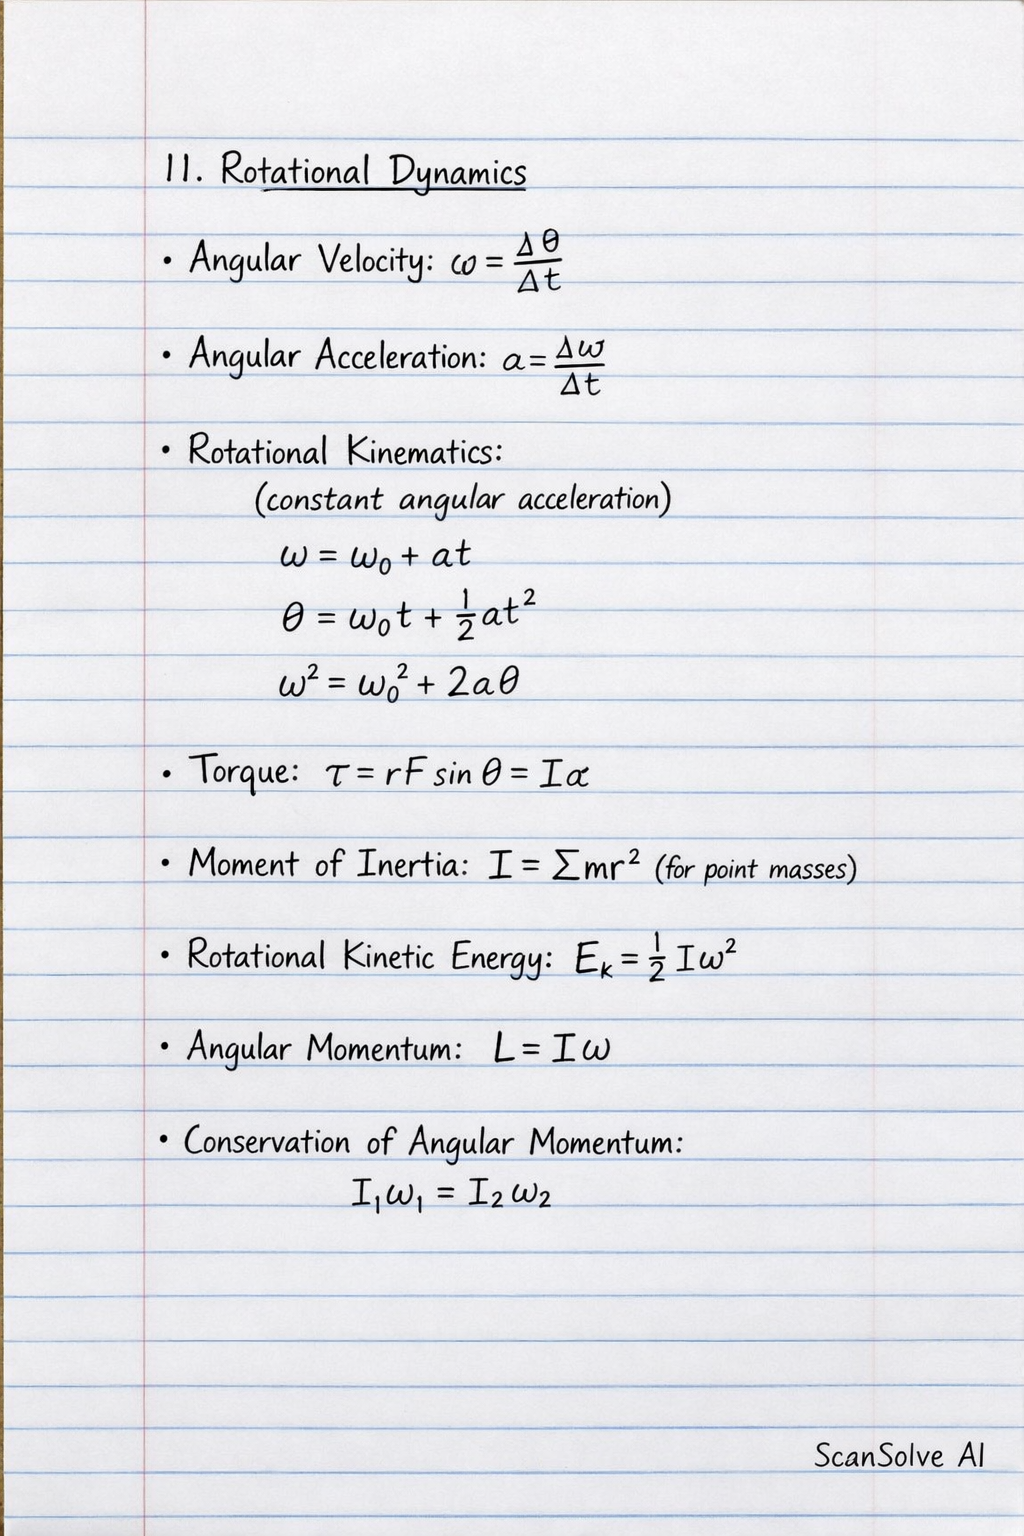 11. Rotational Dynamics
• Angular Velocity: ω = Δθ/Δt
• Angular Acceleration: a = Δω/Δt
• Rotational Kinematics:
(constant angular acceleration)
ω = ω₀ + at
θ = ω₀t + ½at²
ω² = ω₀² + 2aθ
• Torque: τ = rF sin θ = Iα
• Moment of Inertia: I = Σmr² (for point masses)
• Rotational Kinetic Energy: Eₖ = ½ Iω²
• Angular Momentum: L = Iω
• Conservation of Angular Momentum:
I₁ω₁ = I₂ω₂
ScanSolve AI